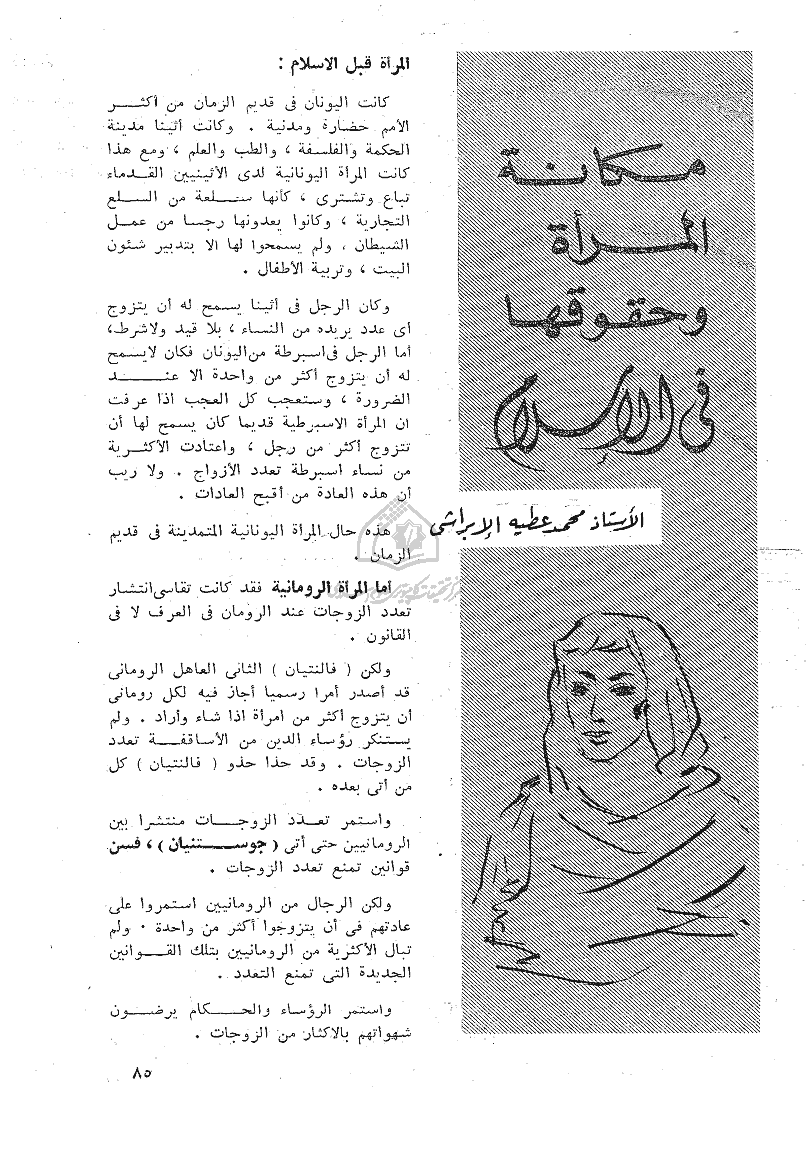 مكانة
المرأة
وحقوقها
فى الإسلام
الأستاذ محمد عطيه الإبراشى
المرأة قبل الاسلام :
كانت اليونان فى قديم الزمان من أكثـــر
الأمم حضارة ومدنية . وكانت أثينا مدينة
الحكمة والفلسفة ، والطب والعلم ، ومع هذا
كانت المرأة اليونانية لدى الأثينيين القــدماء
تباع وتشترى ، كأنها ســلعة من الســلع
التجارية ، وكانوا يعدونها رجسا من عمــل
الشيطان ، ولم يسمحوا لها الا بتدبير شئون
البيت ، وتربية الأطفال .
وكان الرجل فى أثينا يسمح له أن يتزوج
أى عدد يريده من النساء ، بلا قيد ولاشرط،
أما الرجل فى اسبرطة من اليونان فكان لايسمح
له أن يتزوج أكثر من واحدة الا عنــــد
الضرورة ، وستعجب كل العجب اذا عرفت
ان المرأة الاسبرطية قديما كان يسمح لها أن
تتزوج أكثر من رجل ، واعتادت الأكثــرية
من نساء اسبرطة تعدد الأزواج . ولا ريب
أن هذه العادة من أقبح العادات .
هذه حال المرأة اليونانية المتمدينة فى قديم
الزمان .
أما المرأة الرومانية فقد كانت تقاسى انتشار
تعدد الزوجات عند الرومان فى العرف لا فى
القانون .
ولكن ( فالنتيان ) الثانى العاهل الرومانى
قد أصدر أمرا رسميا أجاز فيه لكل رومانى
أن يتزوج أكثر من امرأة اذا شاء وأراد . ولم
يســتنكر رؤساء الدين من الأساقفــة تعدد
الزوجات . وقد حذا حذو ( فالنتيان ) كل
من أتى بعده .
واستمر تعــدد الزوجـــات منتشرا بين
الرومانيين حتى أتى ( جوســـتنيان ) ، فسن
قوانين تمنع تعدد الزوجات .
ولكن الرجال من الرومانيين استمروا على
عادتهم فى أن يتزوجوا أكثر من واحدة . ولم
تبال الأكثرية من الرومانيين بتلك القــوانين
الجديدة التى تمنع التعدد .
واستمر الرؤساء والحــكام يرضــون
شهواتهم بالاكثار من الزوجات .
٨٥